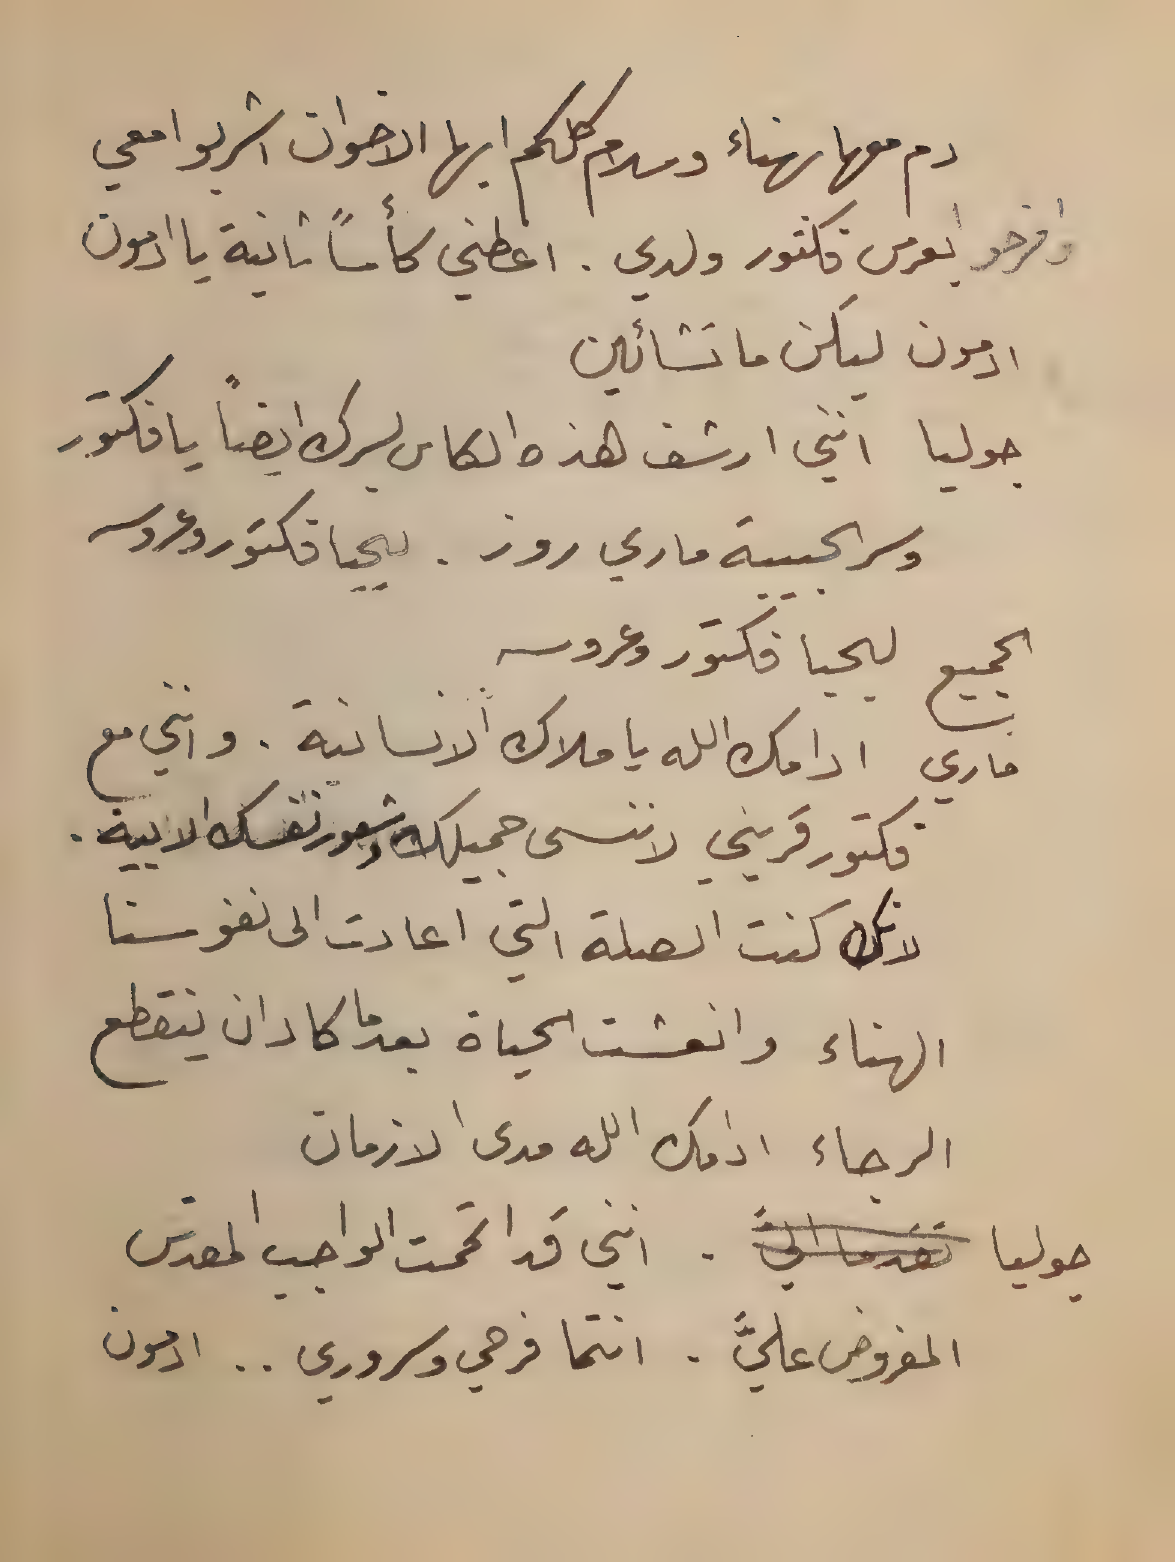 دم معها بهناء وسلام كلكم ايها الاخوان اشربوا معي
وافرحوا بعرس فكتور ولدي . اعطني كأساً ثانية يا ادمون
ادمون ليكن ما تشائين
جوليا انني ارشف هذه الكاس لسرك ايضاً يا فكتور
وسر الحبيبة ماري روز . ليحيا فكتور وعروسه
الجميع ليحيا فكتور وعروسه
ماري ادامك الله يا ملاك الانسانية . وانني مع
فكتور قريني لا ننسى جميلك وشعور نفسك الابية .
لانك كنت الصلة التي اعادت الى نفوسنا
الهناء وانعشت الحياة بعدما كاد ان ينقطع
الرجاء ادامك الله مدى الازمان
جوليا تقدما اليَّ . انني قد اتممت الواجب المقدس
المفروض عليَّ . انتما فرحي وسروري .. ادمون